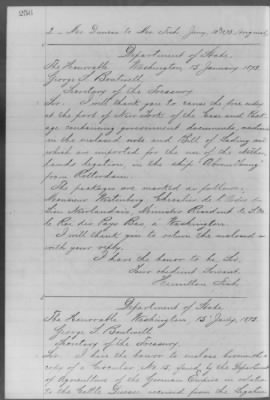 256
Department of State.
The Honorable Washington, 13 January, 1873.
George S. Boutwell,
Secretary of the Treasury.
Sir: I will thank you to cause the free entry
at the port of New York of the Case and Pack-
age containing government documents, mentioned
in the enclosed note and Bill of Lading and
which are imported for the use of the Nether-
lands legation, in the ship
from Rotterdam.
The packages are marked as follows:
Monsieur Westenberg, Chevalier de l'Ordre du
Lion Néerlandais, Ministre Résident de S. M.
le Roi des Pays Bas, à Washington.
I will thank you to return the enclosed
with your reply.
I have the honor to be, Sir,
Your obedient Servant,
Hamilton Fish.
Department of State.
The Honorable Washington, 15 Jany, 1873.
George S. Boutwell,
Secretary of the Treasury.
Sir: I have the honor to enclose herewith a
copy of a Circular No. 15, issued by the Department
of Agriculture of the German Empire in relation
to the Cattle Disease received from the Legation